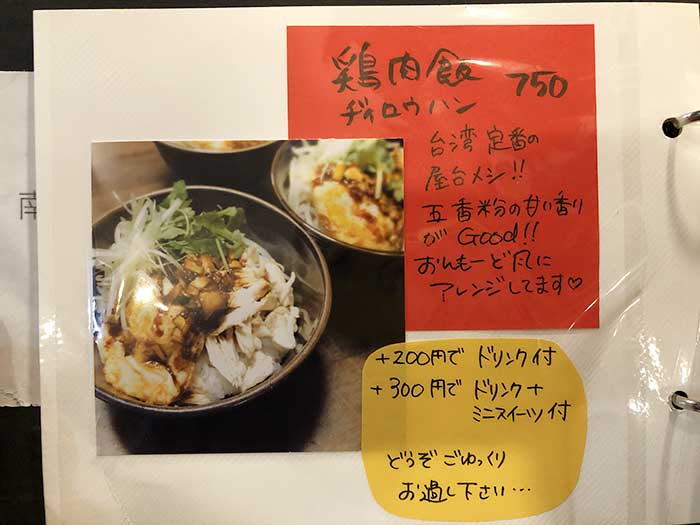 鶏肉飯 750
ヂィロウハン
台湾定番の
屋台メシ!!
五香粉の甘い香り
が Good!!
おんもーど風に
アレンジしてます♡
+200円で ドリンク付
+300円で ドリンク+
ミニスイーツ付
どうぞ ごゆっくり
お過し下さい…
南